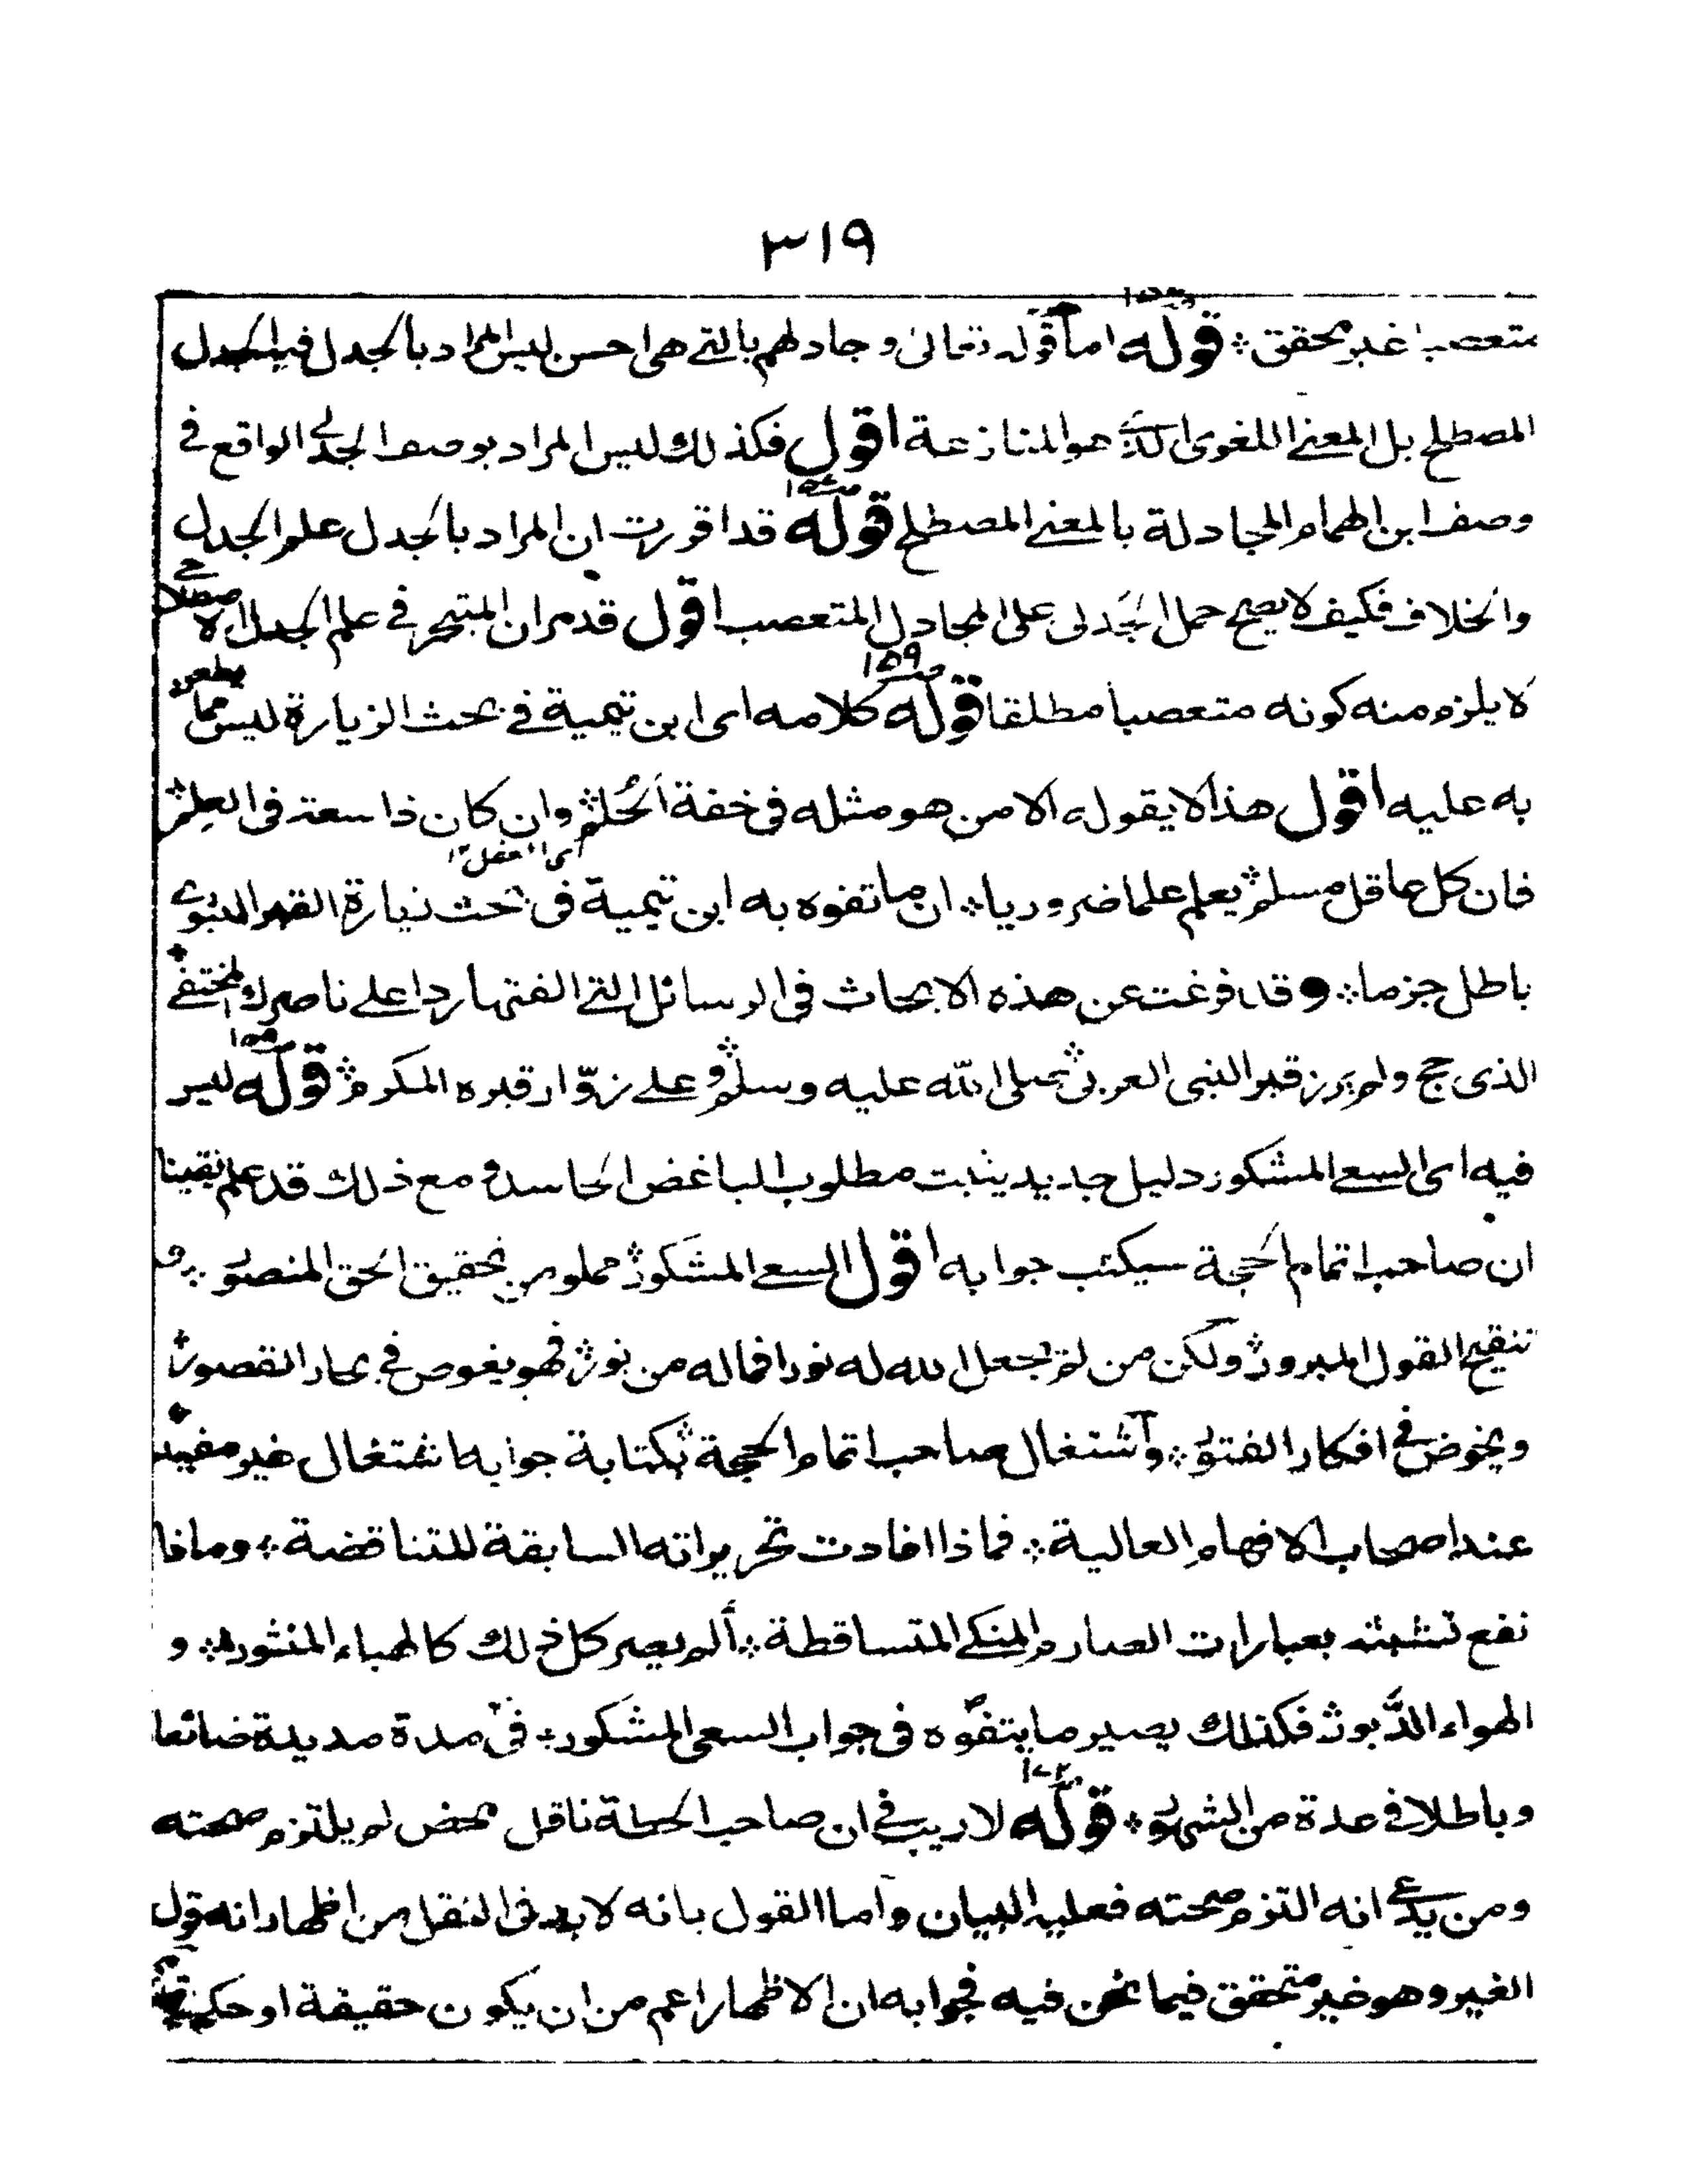 ٣١٩
متعصبا غير محقق ؞ قوله اما قوله تعالى وجادلهم بالتي هي احسن ليس المراد بالجدل فيه الجدل
المصطلح بل المعنى اللغوى الذى هو المنازعة اقول فكذلك ليس المراد بوصف الجدلي الواقع في
وصف ابن الهمام المجادلة بالمعنى المصطلح قوله قد اقررت ان المراد بالجدل علم الجدل
والخلاف فكيف لا يصح حمل الجَدلى على المجادل المتعصب اقول قد مر ان المتبحر في علم الجدل الاصطلاحي
لا يلزم منه كونه متعصبا مطلقا قوله ١٥٩ كلامه اى ابن تيمية في بحث الزيارة ليس مما يطعن
به عليه اقول هذا لا يقوله الا من هو مثله فى خفة الحُلم ؞ وان كان ذا سعة فى العِلم ؞
اى العقل ١٢
فان كل عاقل مسلم ؞ يعلم علما ضروريا ؞ ان ما تفوه به ابن تيمية فى بحث زيارة القبر النبوي
باطل جزما ؞ وقد فرغت عن هذه الابحاث فى الرسائل التي الفتها ردا على ناصرك المختفي ؞
الذى حج ولم يزر قبر النبى العربى ؞ صلى الله عليه وسلم ؞ وعلى زوّار قبره المكرم ؞ قوله ليس
فيه اى السعي المشكور دليل جديد يثبت مطلوب الباغض الحاسد و مع ذلك قد علم يقينا
ان صاحب اتمام الحجة سيكتب جوابه اقول السعي المشكور ؞ مملو من تحقيق الحق المنصور ؞ و
تنقيح القول المبرور ؞ ولكن من لم يجعل الله له نورا فما له من نور ؞ فهو يغوص في بحار القصور ؞
ويخوض في افكار الفتور ؞ واشتغال صاحب اتمام الحجة ؞ بكتابة جوابه اشتغال غير مفيد ؞
عند اصحاب الافهام العالية ؞ فماذا افادت تحريراته السابقة المتناقضة ؞ وماذا
نفع تشبثه بعبارات الصارم المنكي المتساقطة ؞ ألم يصر كل ذلك كالهباء المنثور ؞ و
الهواء الدَّبور ؞ فكذلك يصير ما يتفوّه فى جواب السعى المشكور ؞ فى مدة مديدة ضائعا
وباطلا في عدة من الشهور ؞ قوله لا ريب في ان صاحب الحطة ناقل محض لم يلتزم صحته
ومن يدعي انه التزم صحته فعليه البيان واما القول بانه لا بد فى النقل من اظهار انه قول
الغير وهو غير متحقق فيما نحن فيه فجوابه ان الاظهار اعم من ان يكون حقيقة او حكما